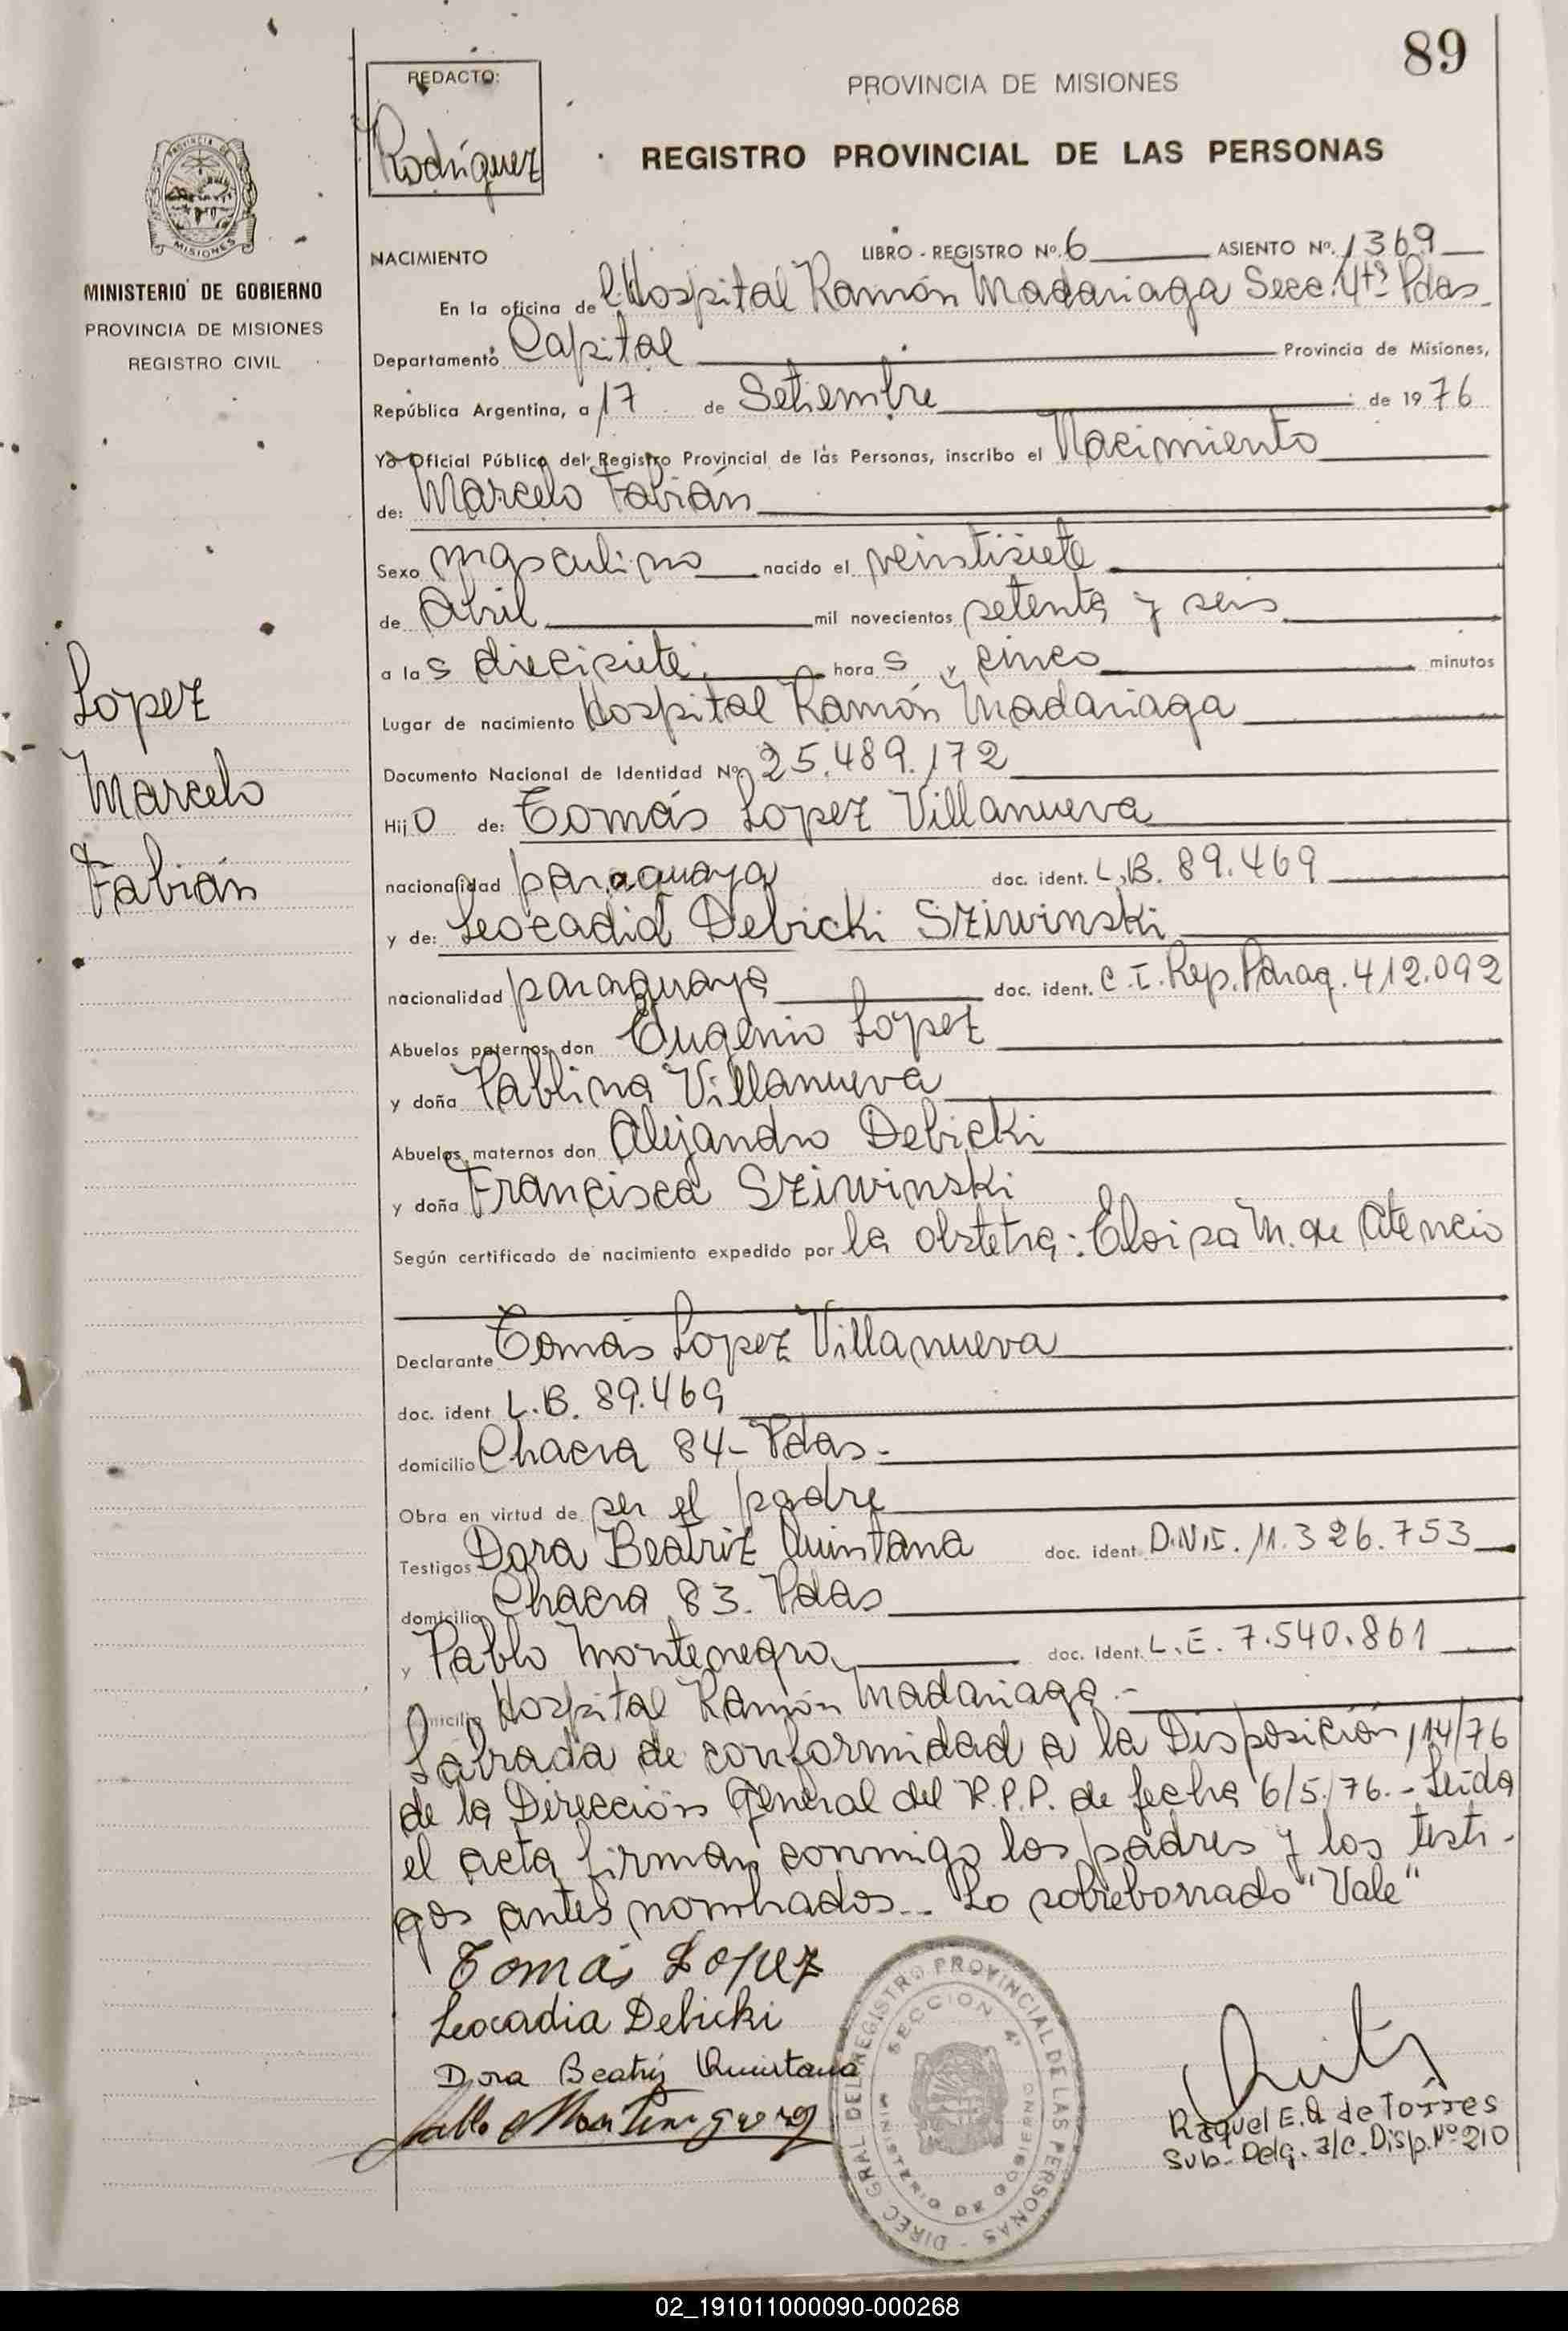 89
REDACTO:
Rodríguez
PROVINCIA DE MISIONES
REGISTRO PROVINCIAL DE LAS PERSONAS
PROVINCIA DE
MISIONES
MINISTERIO DE GOBIERNO
PROVINCIA DE MISIONES
REGISTRO CIVIL
Lopez
Marcelo
Fabián
NACIMIENTO LIBRO - REGISTRO Nº. 6 ASIENTO Nº. 1369
En la oficina del Hospital Ramón Madariaga Secc. 4ta Pdas
Departamento Capital Provincia de Misiones,
República Argentina, a 17 de Setiembre de 1976
Yo Oficial Público del Registro Provincial de las Personas, inscribo el Nacimiento
de: Marcelo Fabián
Sexo masculino nacido el veintisiete
de Abril mil novecientos setenta y seis
a las diecisiete horas y cinco minutos
Lugar de nacimiento Hospital Ramón Madariaga
Documento Nacional de Identidad Nº 25.489.172
Hijo de: Tomás Lopez Villanueva
nacionalidad paraguaya doc. ident. L.B. 89.469
y de: Leocadia Debicki Sziwinski
nacionalidad paraguaya doc. ident. C.I. Rep. Parag. 412.092
Abuelos paternos don Eugenio Lopez
y doña Pablina Villanueva
Abuelos maternos don Alejandro Debicki
y doña Francisca Sziwinski
Según certificado de nacimiento expedido por la obstetra: Eloisa M. de Atencio
Declarante Tomás Lopez Villanueva
doc. ident L.B. 89.469
domicilio Chacra 84- Pdas.-
Obra en virtud de ser el padre
Testigos Dora Beatriz Quintana doc. ident. D.N.I. 11.326.753
domicilio Chacra 83. Pdas
y Pablo Montenegro doc. Ident. L.E. 7.540.861
domicilio Hospital Ramón Madariaga.-
Labrada de conformidad a la Disposición 114/76
de la Dirección General del R.P.P. de fecha 6/5/76.- Leida
el acta firman conmigo los padres y los testi-
gos antes nombrados.- Lo sobreborrado "Vale"
Tomás Lopez
Leocadia Debicki
Dora Beatriz Quintana
Pablo Montenegro
DIREC GRAL DEL REGISTRO PROVINCIAL DE LAS PERSONAS
SECCION 4ª
MINISTERIO DE GOBIERNO
Raquel E. Q de Torres
Sub-Delg. a/c. Disp. Nº 210
02_191011000090-000268